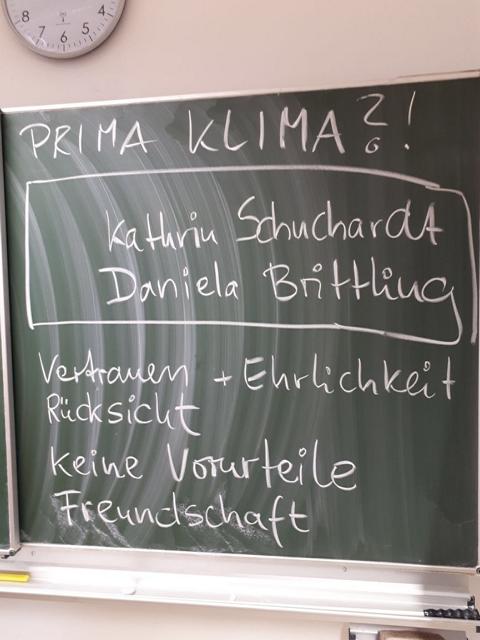 8 7 6 5 4
PRIMA KLIMA?!
Kathrin Schuchardt
Daniela Brittling
Vertrauen + Ehrlichkeit
Rücksicht
keine Vorurteile
Freundschaft